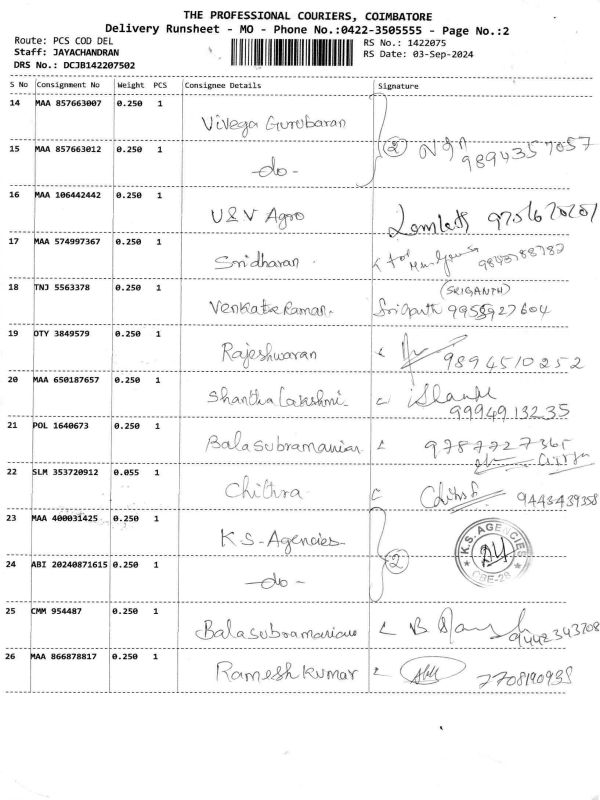 THE PROFESSIONAL COURIERS, COIMBATORE
Delivery Runsheet - MO - Phone No.:0422-3505555 - Page No.:2
Route: PCS COD DEL
RS No.: 1422075
Staff: JAYACHANDRAN
RS Date: 03-Sep-2024
DRS No.: DCJB142207502
S No Consignment No Weight PCS Consignee Details Signature
14 MAA 857663007 0.250 1 Vivega Gurubaran
15 MAA 857663012 0.250 1 -do- 2 9894357057
16 MAA 106442442 0.250 1 U&V Agro
17 MAA 574997367 0.250 1 Sridharan
18 TNJ 5563378 0.250 1 Venkata Raman. (SRIGANTH)
19 OTY 3849579 0.250 1 Rajeshwaran 9894510252
20 MAA 650187657 0.250 1 Shantha Lakshmi 9994913235
21 POL 1640673 0.250 1 Balasubramanian 9787727365
22 SLM 353720912 0.055 1 Chithra 9443439358
23 MAA 400031425 0.250 1 K.S. Agencies 2 K.S. AGENCIES CBE-28
24 ABI 20240871615 0.250 1 -do-
25 CMM 954487 0.250 1 Balasubramanian 9442343708
26 MAA 866878817 0.250 1 Ramesh Kumar 7708190938